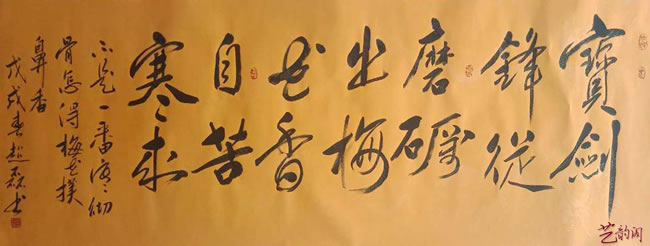 寶劍
鋒從
磨礪
出梅
花香
自苦
寒來
不是一番寒徹
骨怎得梅花撲
鼻香
戊戌春趙磊书
艺韵阁